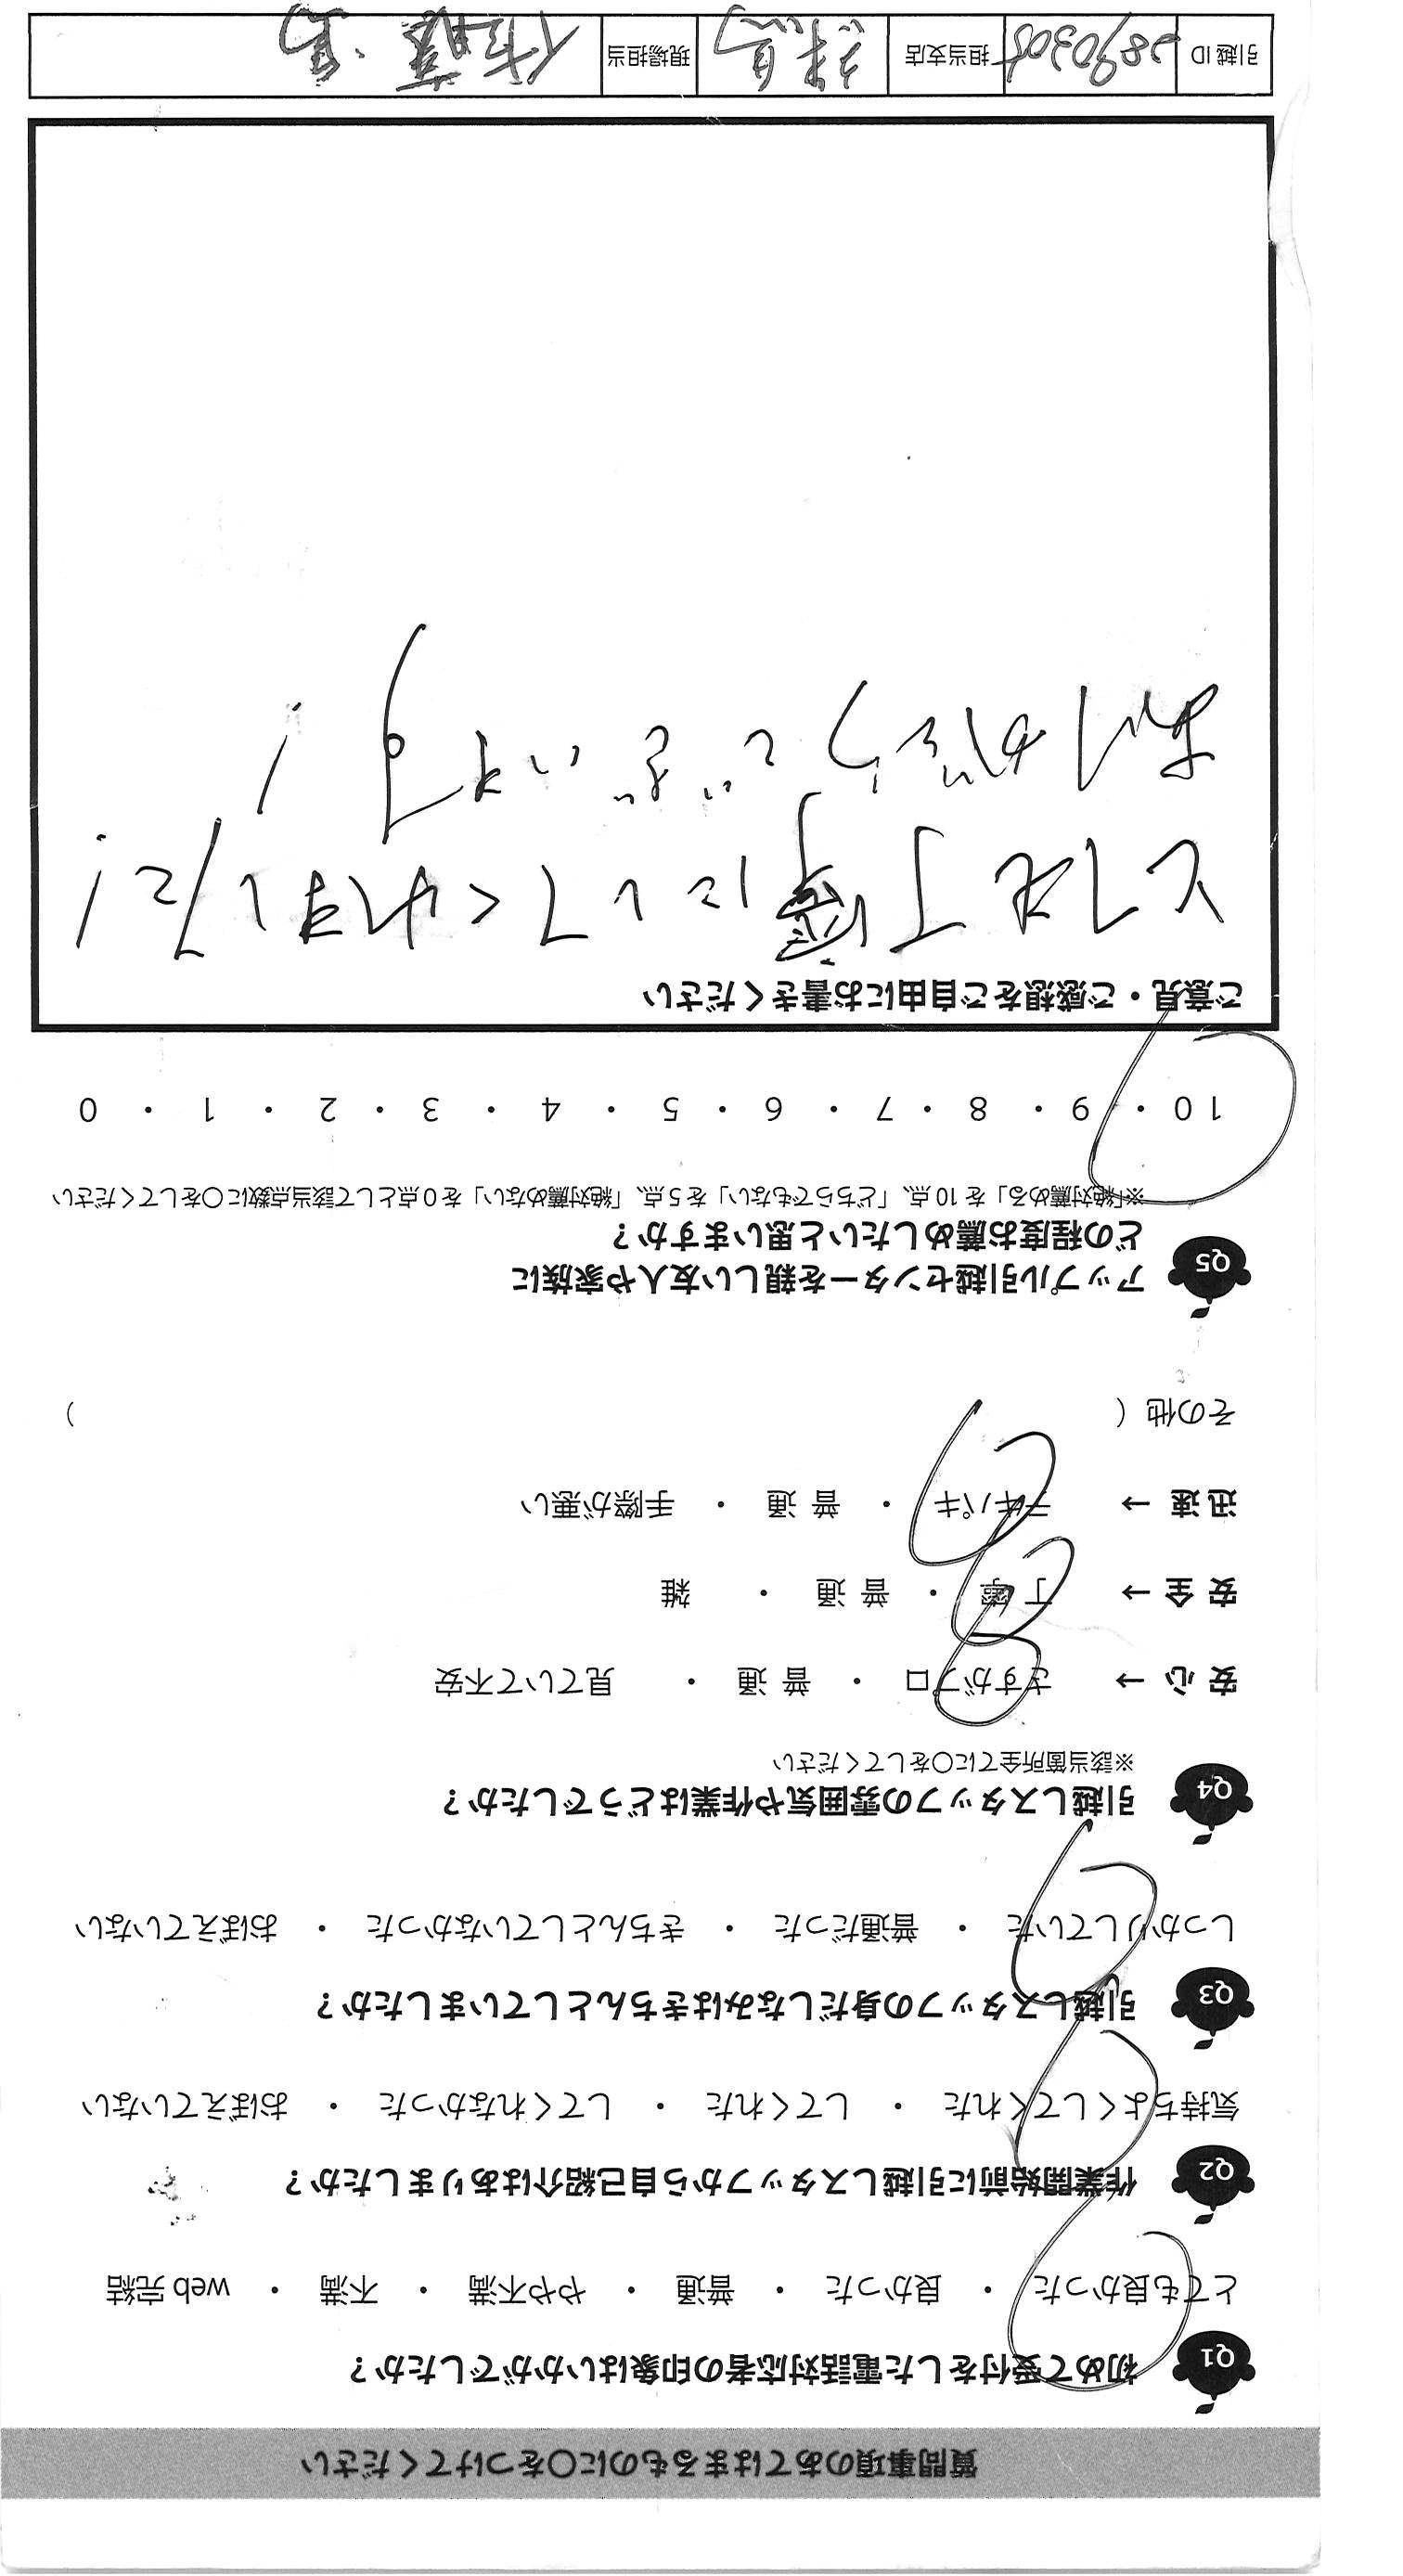 質問事項のあてはまるものに〇をつけてください
Q1 初めて受付をした電話対応者の印象はいかがでしたか?
とても良かった ・ 良かった ・ 普通 ・ やや不満 ・ 不満 ・ web 完結
Q2 作業開始前に引越しスタッフから自己紹介はありましたか?
気持ちよくしてくれた ・ してくれた ・ してくれなかった ・ おぼえていない
Q3 引越しスタッフの身だしなみはきちんとしていましたか?
しっかりしていた ・ 普通だった ・ きちんとしていなかった ・ おぼえていない
Q4 引越しスタッフの雰囲気や作業はどうでしたか?
※該当箇所全てに〇をしてください
安心 → さすがプロ ・ 普通 ・ 見ていて不安
安全 → 丁寧 ・ 普通 ・ 雑
迅速 → テキパキ ・ 普通 ・ 手際が悪い
その他 ( )
Q5 アップル引越センターを親しい友人や家族に
どの程度お薦めしたいと思いますか?
※「絶対薦める」を10点、「どちらでもない」を5点、「絶対薦めない」を0点として該当点数に〇をしてください
10 ・ 9 ・ 8 ・ 7 ・ 6 ・ 5 ・ 4 ・ 3 ・ 2 ・ 1 ・ 0
ご意見・ご感想をご自由にお書きください
とても丁寧にしてくれました!
ありがとうございます!
引越ID 2890305 担当支店 練馬 現場担当 佐藤・馬